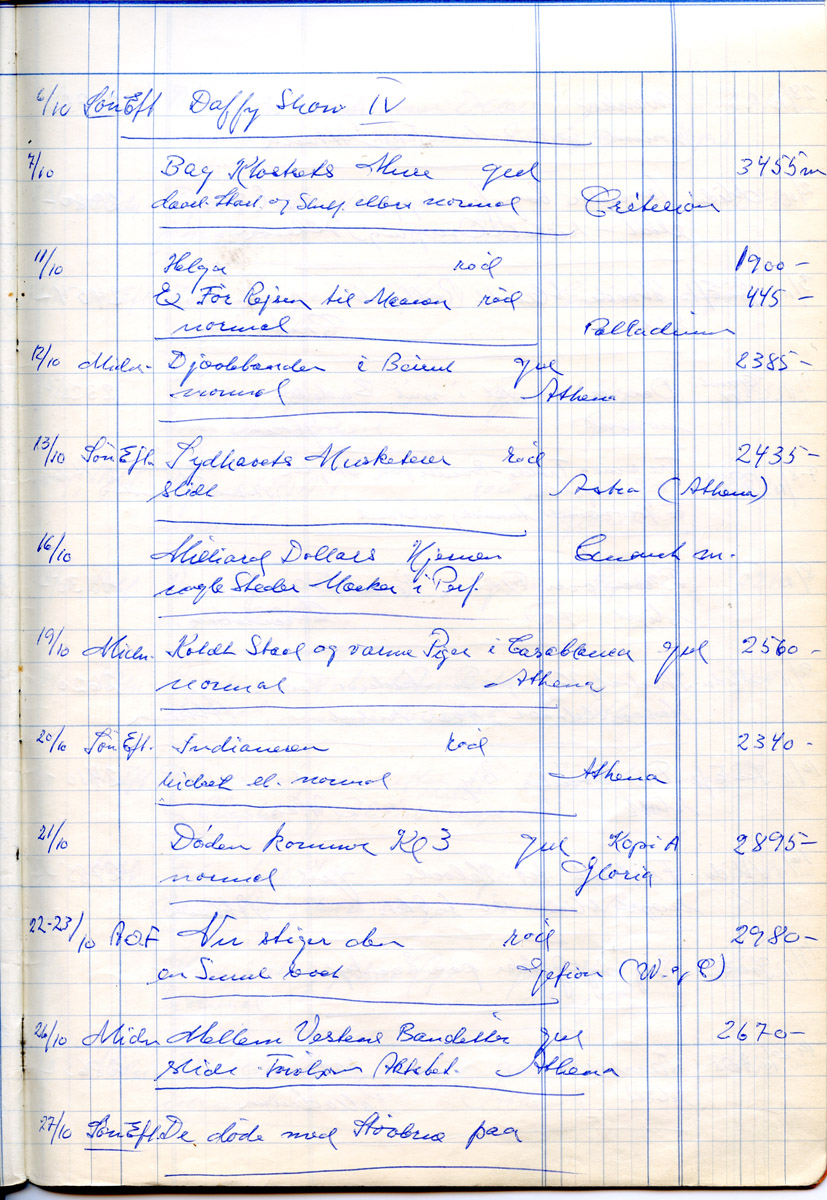 6/10 SönEft Daffy Show IV
7/10 Bag Klostrets Mure gul 3455 m
daarl. Start. og Slut. ellers normal Criterion
11/10 Helga röd 1900 -
Ex För Rejsen til Maanen röd 445 -
normal Palladium
12/10 Midn. Djævlebanden i Beirut gul 2385 -
normal Athena
13/10 SönEft. Sydhavets Musketerer röd 2435 -
slidt Astra (Athena)
16/10 Milliard Dollars Hjernen m.
nogle Steder Mærker i Perf.
19/10 Midn. Koldt Staal og varme Piger i Casablanca gul 2560 -
normal Athena
20/10 SönEft. Indianeren röd 2340 -
el. normal Athena
21/10 Döden kommer Kl 3 gul Kopi A 2895 -
normal Gloria
22-23/10 Nu stiger den röd 2980 -
en Smule Gefion (W. og C)
26/10 Midn Mellem Vestens Banditter gul 2670 -
slidt Aktebet. Athena
27/10 SönEft. De döde med Stövlerne paa